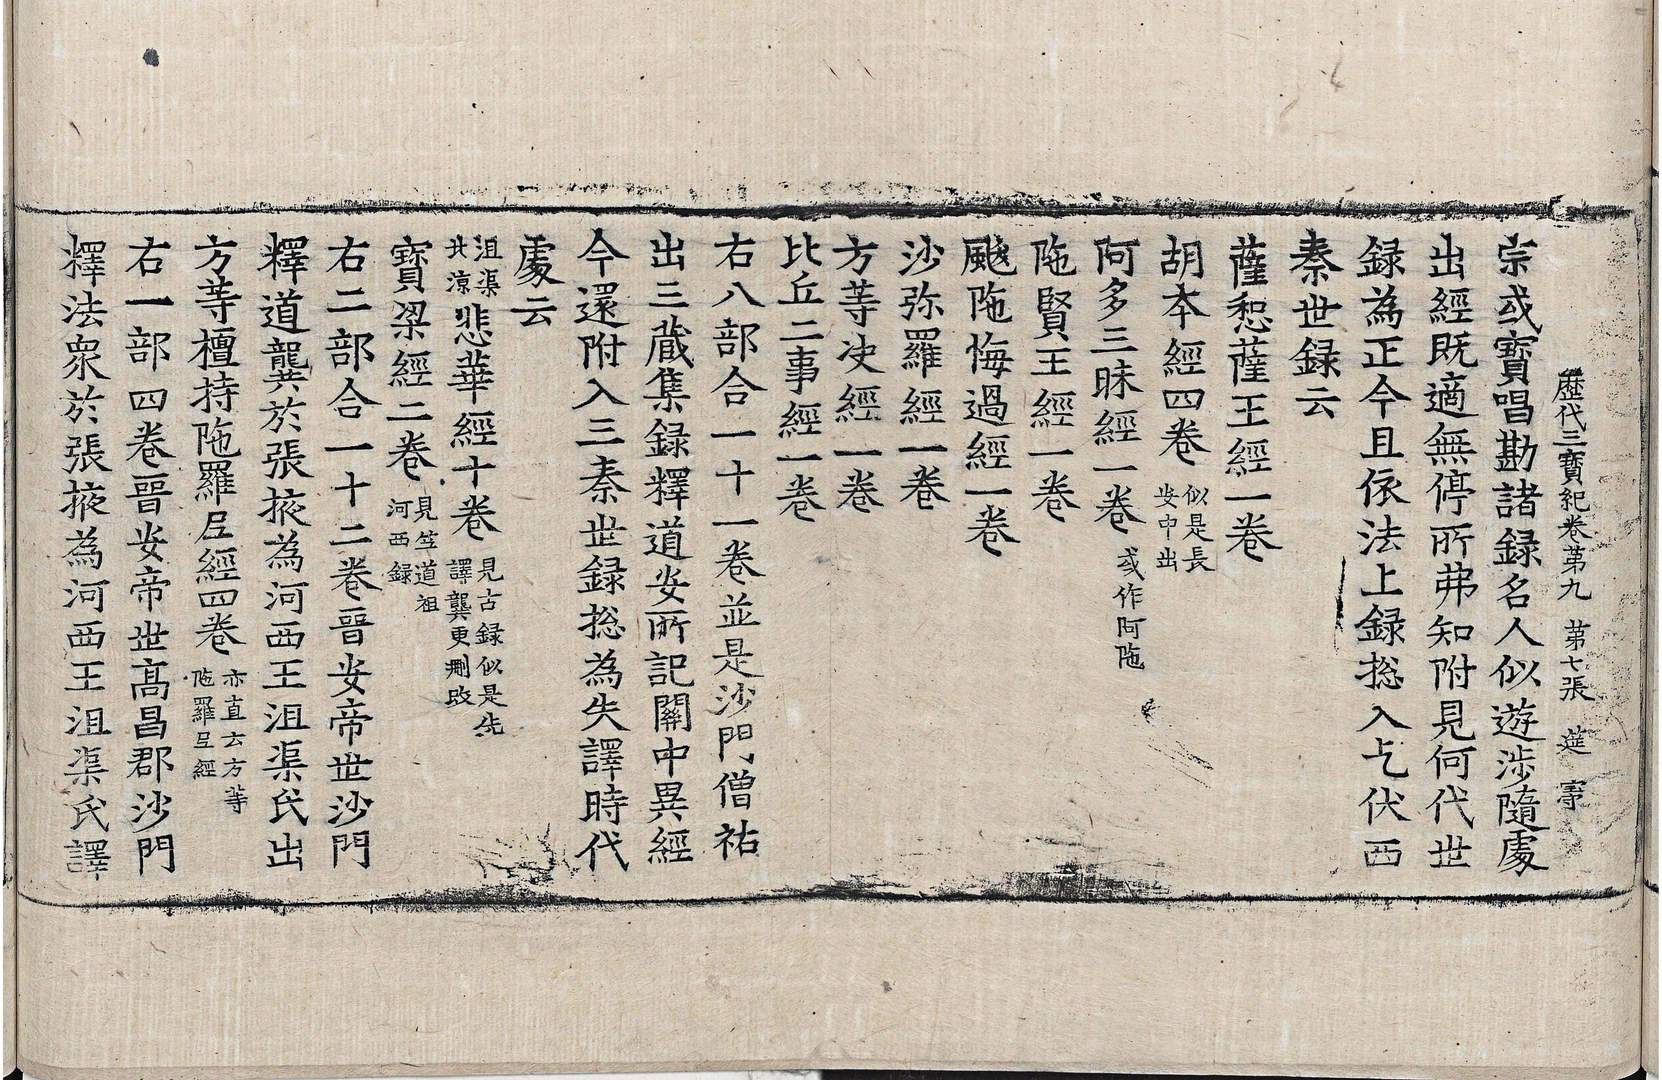 歷代三寶紀卷第九 第七張 莚
宗或寶唱勘諸録名人似遊涉隨處
出經既適無停所弗知附見何代世
録為正今且依法上録揔入乞伏西
秦世録云
薩恕薩王經一卷
胡本經四卷 似是長
安中出
阿多三昧經一卷 或作阿陁
陁賢王經一卷
颰陁悔過經一卷
沙弥羅經一卷
方等決經一卷
比丘二事經一卷
右八部合一十一卷並是沙門僧祐
出三藏集録釋道安所記關中異經
今還附入三秦世録揔為失譯時代
處云
沮渠
北涼 悲華經十卷 見古録似是先
譯龔更刪改
寶梁經二卷 見竺道祖
河西録
右二部合一十二卷晉安帝世沙門
釋道龔於張掖為河西王沮渠氏出
方等檀持陁羅𡰱經四卷 亦直云方等
陁羅𡰱經
右一部四卷晉安帝世髙昌郡沙門
釋法衆於張掖為河西王沮渠氏譯